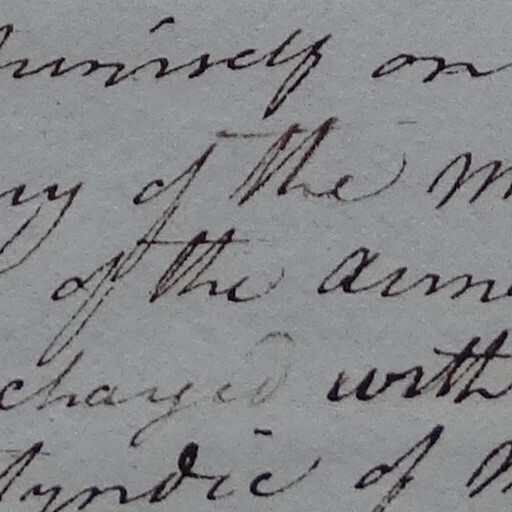 himself on
of the
of the
charged with
Syndic of